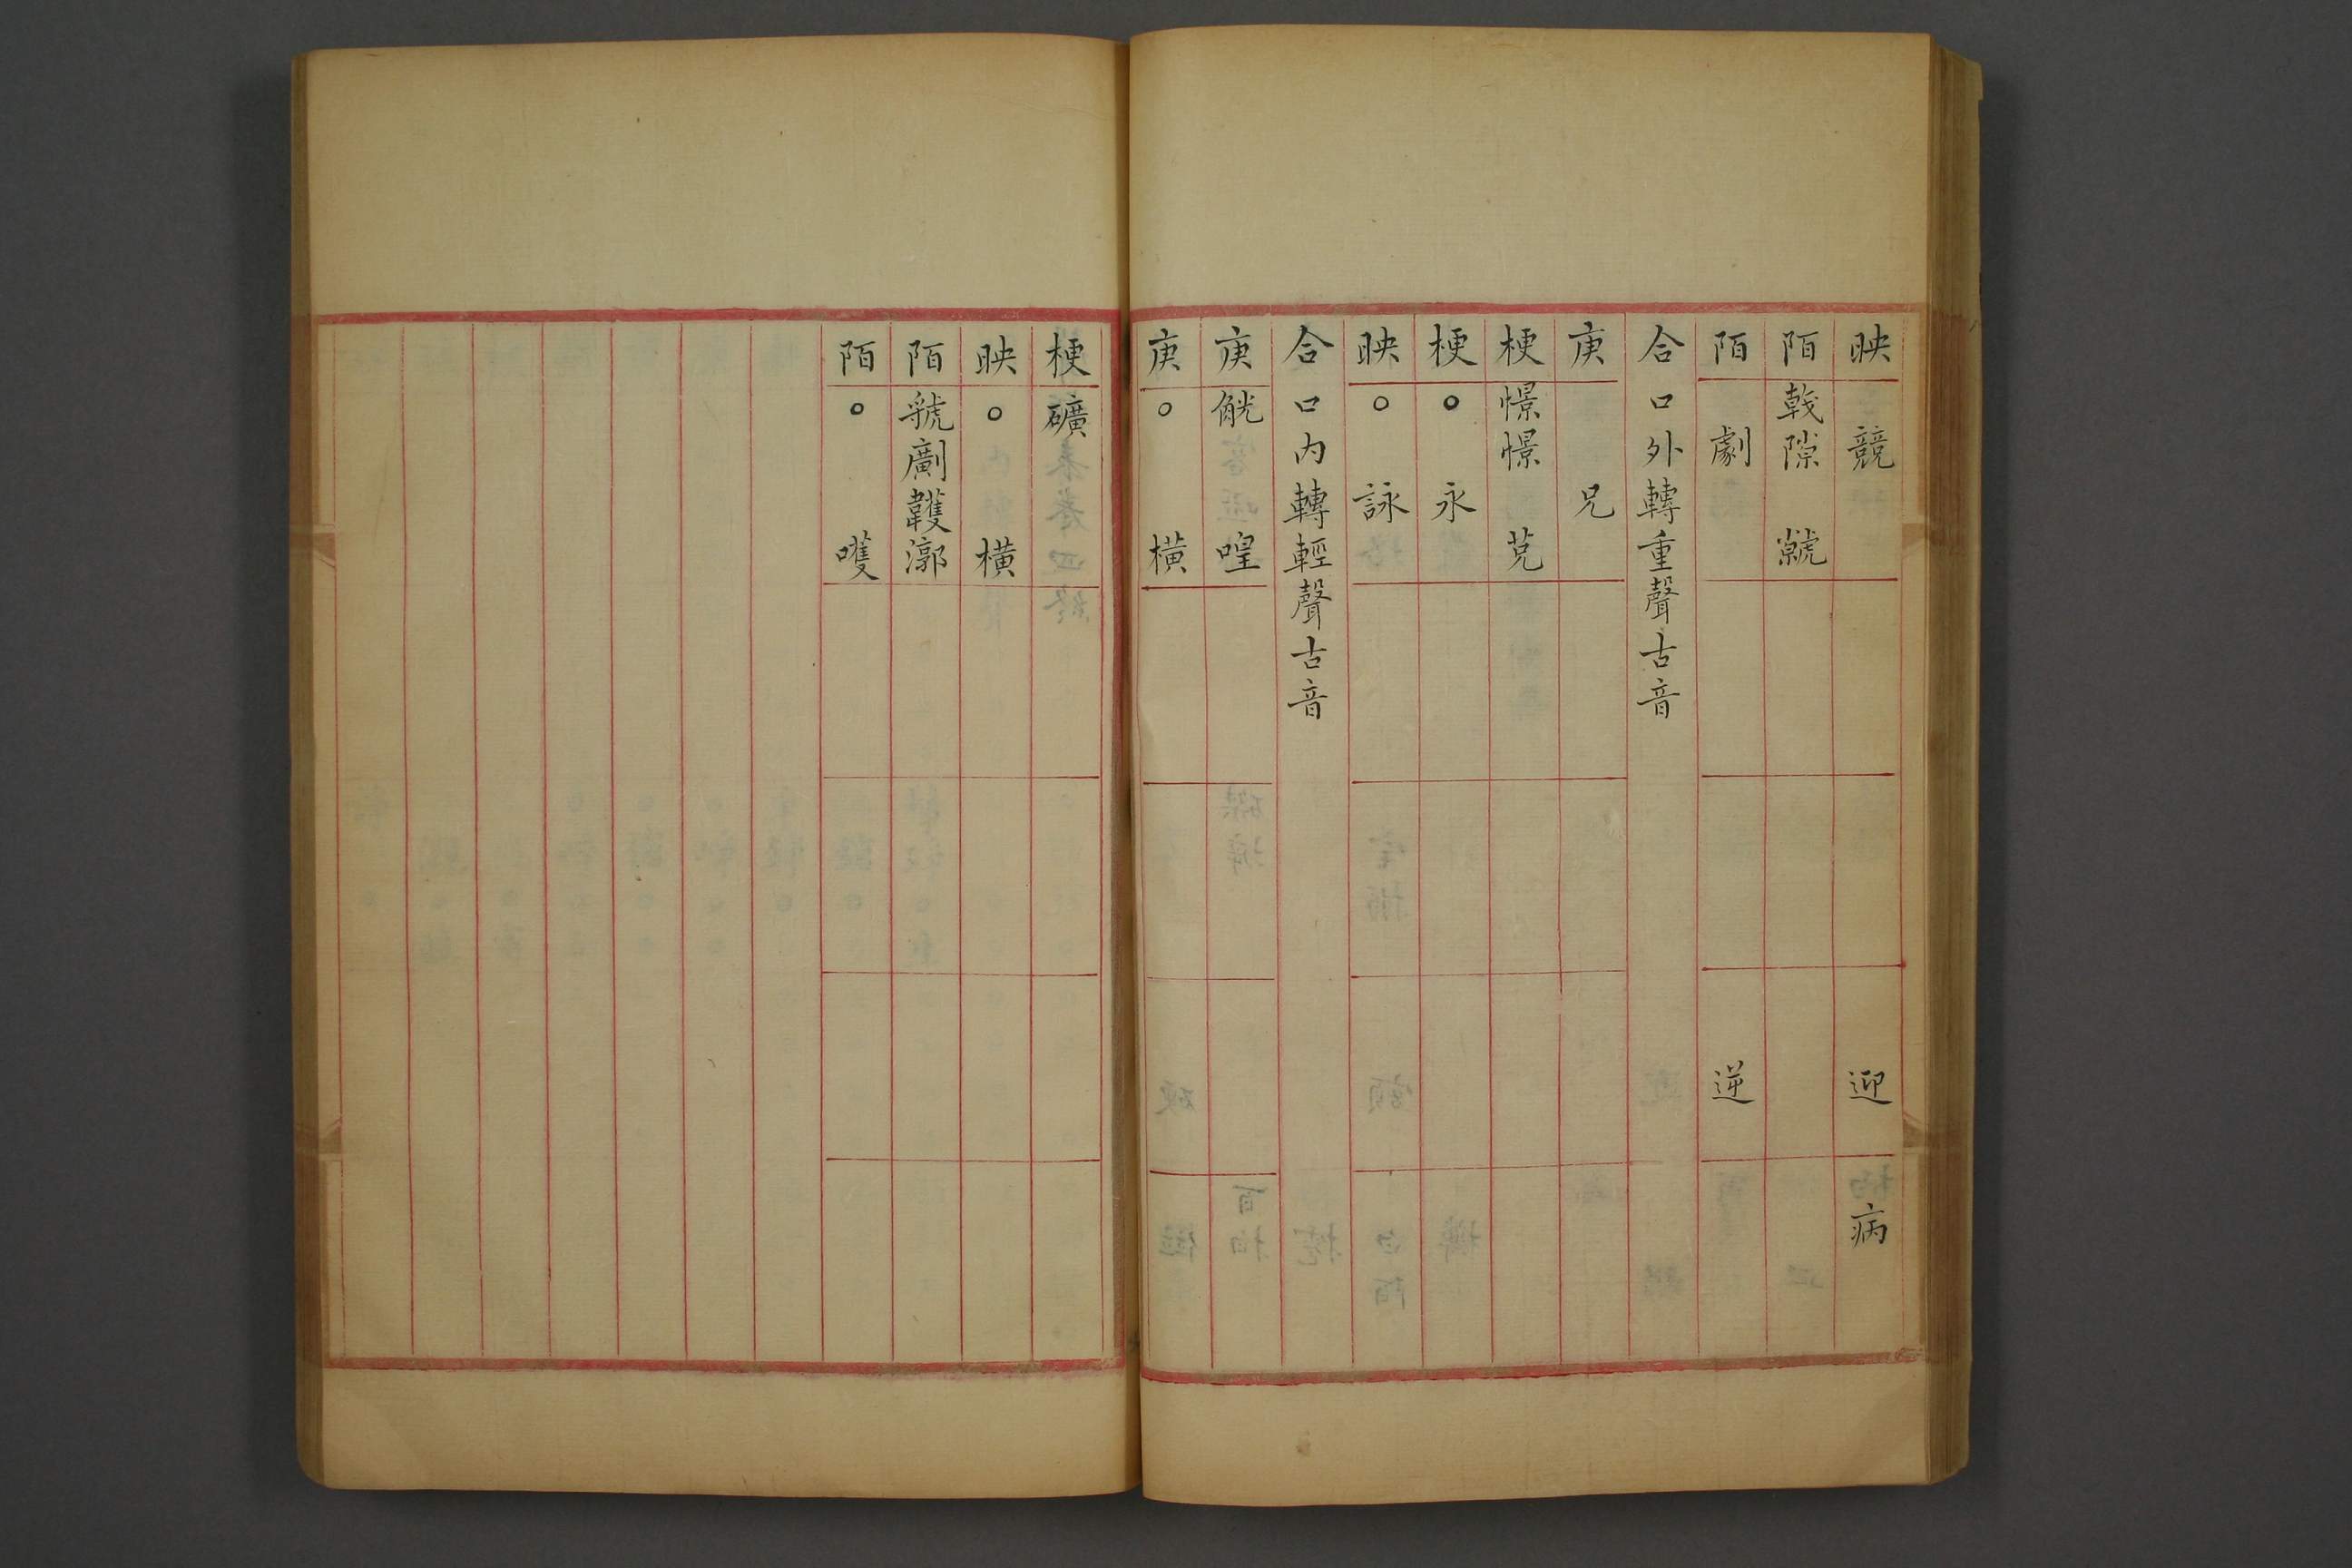 映競迎病
陌𢧢隙虩
陌劇逆
合口外轉重聲古音
庚兄
梗憬憬䒱
梗○永
映○詠
合口内轉輕聲古音
庚觥喤
庚○横
梗礦
映○横
陌虢劘韄漷
陌○嚄